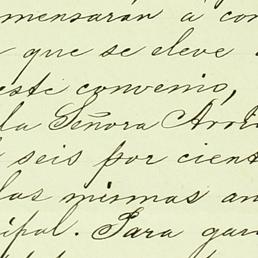 menzarán á con
que se eleve
este convenio,
la Señora Arr
seis por cient
las mismas an
ipal. Para gar